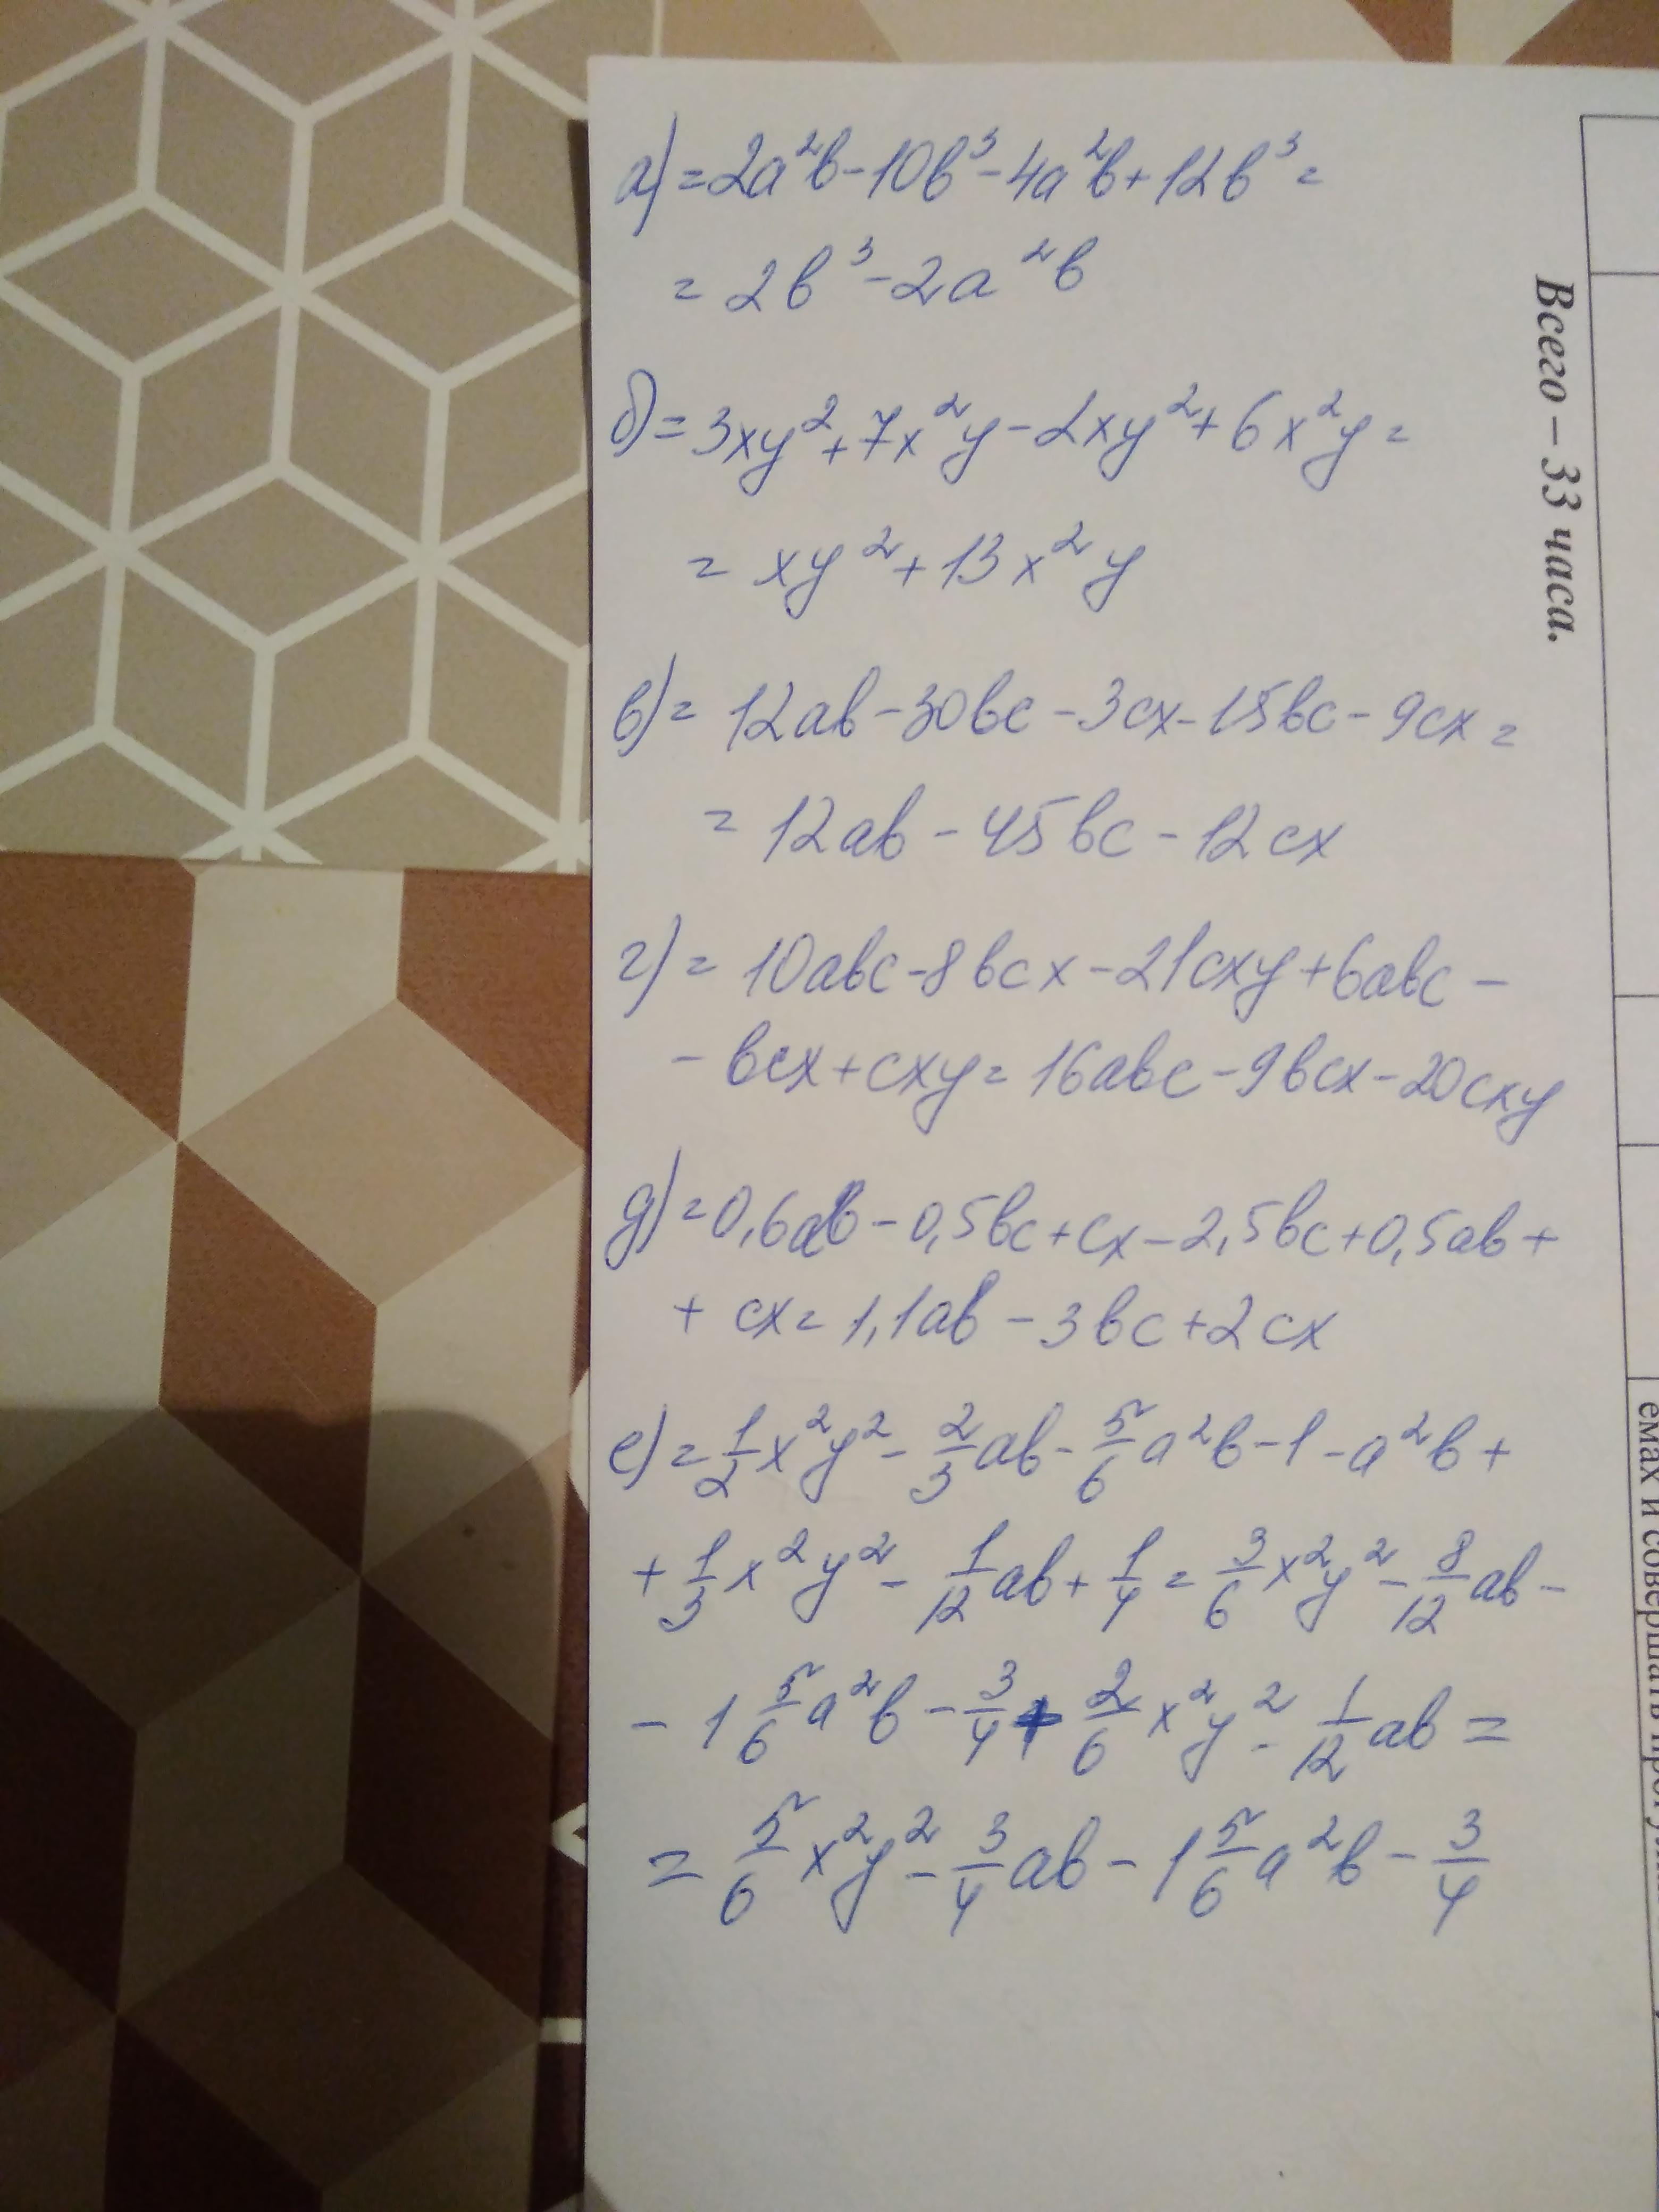 а) = 2a²b - 10b³ - 4a²b + 12b³ =
= 2b³ - 2a²b
б) = 3xy² + 7x²y - 2xy² + 6x²y =
= xy² + 13x²y
в) = 12ab - 30bc - 3cx - 15bc - 9cx =
= 12ab - 45bc - 12cx
г) = 10abc - 8bcx - 21cxy + 6abc -
- bcx + cxy = 16abc - 9bcx - 20cxy
д) = 0,6ab - 0,5bc + cx - 2,5bc + 0,5ab +
+ cx = 1,1ab - 3bc + 2cx
е) = 1/2 x²y² - 2/3 ab - 5/6 a²b - 1 - a²b +
+ 1/3 x²y² - 1/12 ab + 1/4 = 3/6 x²y² - 8/12 ab -
- 1 5/6 a²b - 3/4 + 2/6 x²y² - 1/12 ab =
= 5/6 x²y² - 3/4 ab - 1 5/6 a²b - 3/4
Всего – 33 часа.
емах и совершать